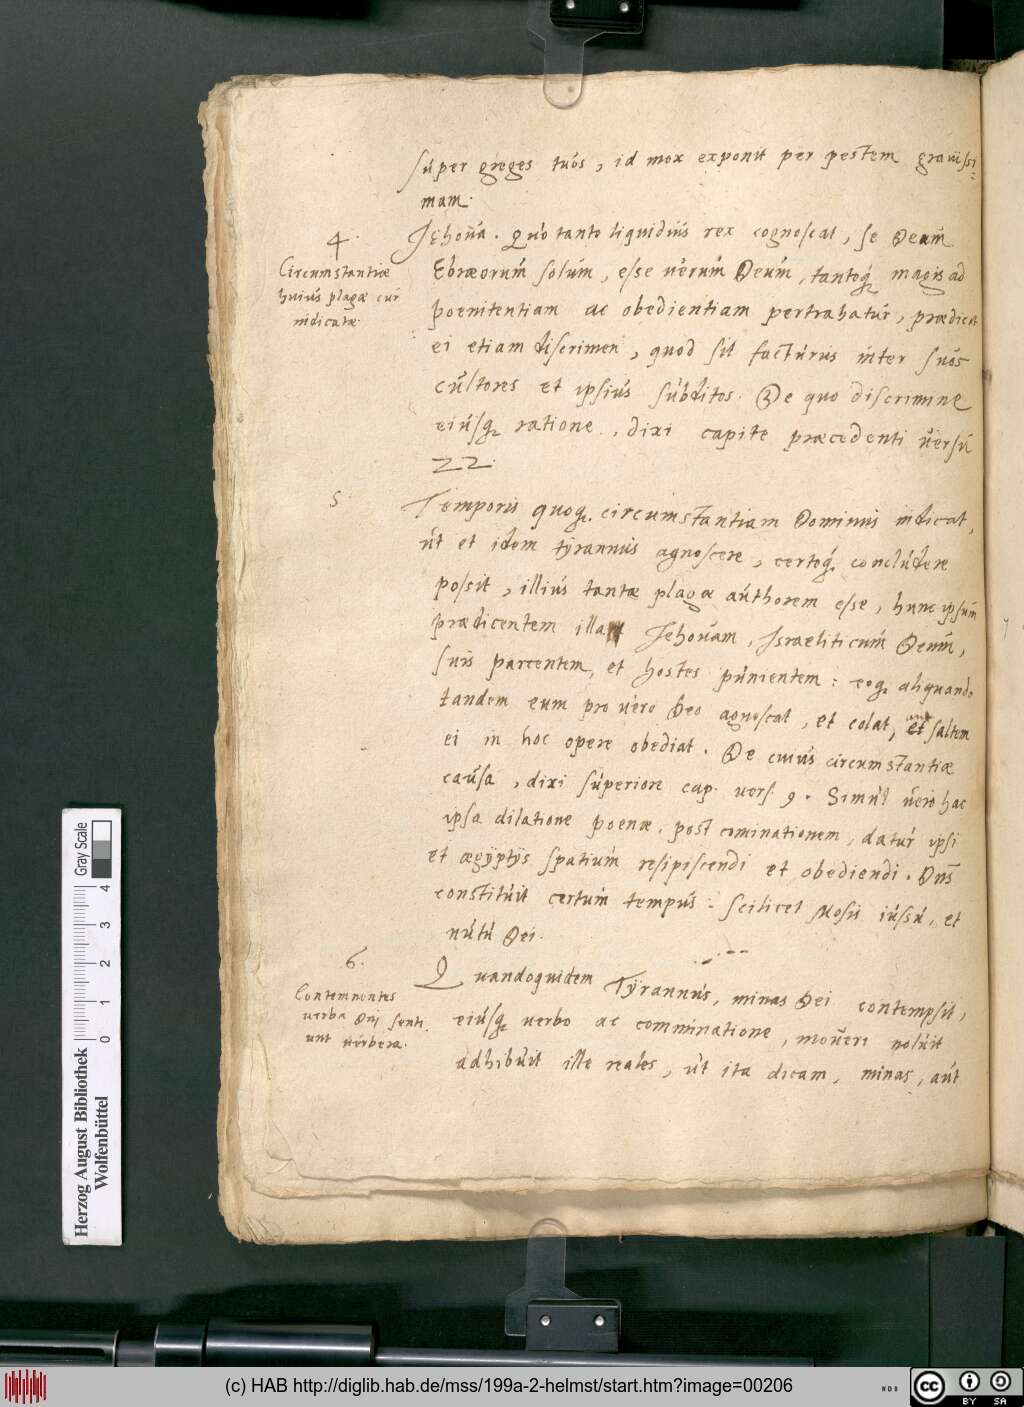 super greges tuos, id mox exponit per pestem gravissi-
mam.
4.
Circumstantiæ
huius plagæ cur
indicatæ.
Jehova. Quo tanto liquidius rex cognoscat, se Deum
Ebræorum solum, esse verum Deum, tantoq; magis ad
poenitentiam ac obedientiam pertrahatur, prædicit
ei etiam discrimen, quod sit facturus inter suos
cultores et ipsius subditos. De quo discrimine
eiusq; ratione, dixi capite præcedenti versu
22.
5.
Temporis quoq; circumstantiam Dominus indicat,
ut et idem tÿrannus agnoscere, certoq; concludere
possit, illius tantæ plagæ authorem esse, hunc ipsum
prædicentem illam Jehovam, Israeliticum Deum,
suis parcentem, et hostes punientem: eoq; aliquando
tandem eum pro vero Deo agnoscat, et colat, et saltem
ei in hoc opere obediat. De cuius circumstantiæ
causa, dixi superiore cap. vers. 9. Simul vero hac
ipsa dilatione poenæ, post cominationem, datur ipsi
et ægÿptÿs spatium resipiscendi et obediendi. Dns
constituit certum tempus: scilicet Mosis iussu, et
nutu Dei.
6.
Contemnentes
verba Dei senti-
unt verbera.
Quandoquidem Tÿrannus, minas Dei contempsit,
eiusq; verbo ac comminatione, moveri noluit
adhibuit ille reales, ut ita dicam, minas, aut
Herzog August Bibliothek
Wolfenbüttel
0 1 2 3 4
Gray Scale
(c) HAB http://diglib.hab.de/mss/199a-2-helmst/start.htm?image=00206
cc BY SA